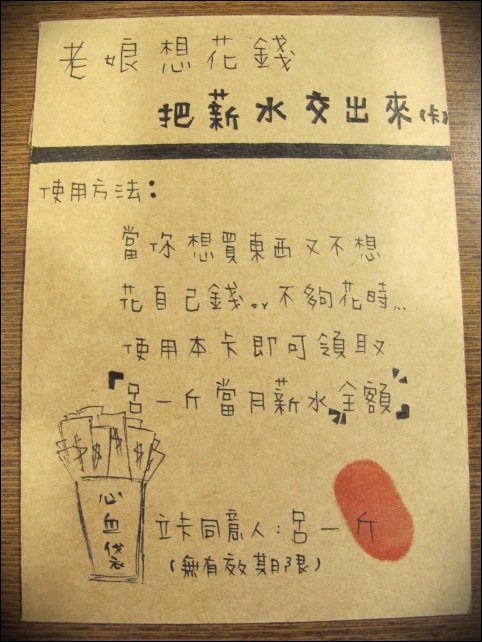 老娘想花錢
把薪水交出來(卡)
使用方法：
當你想買東西又不想
花自己錢。。不夠花時...
使用本卡即可領取
『呂一斤當月薪水全額』
心血袋
立卡同意人：呂一斤
(無有效期限)